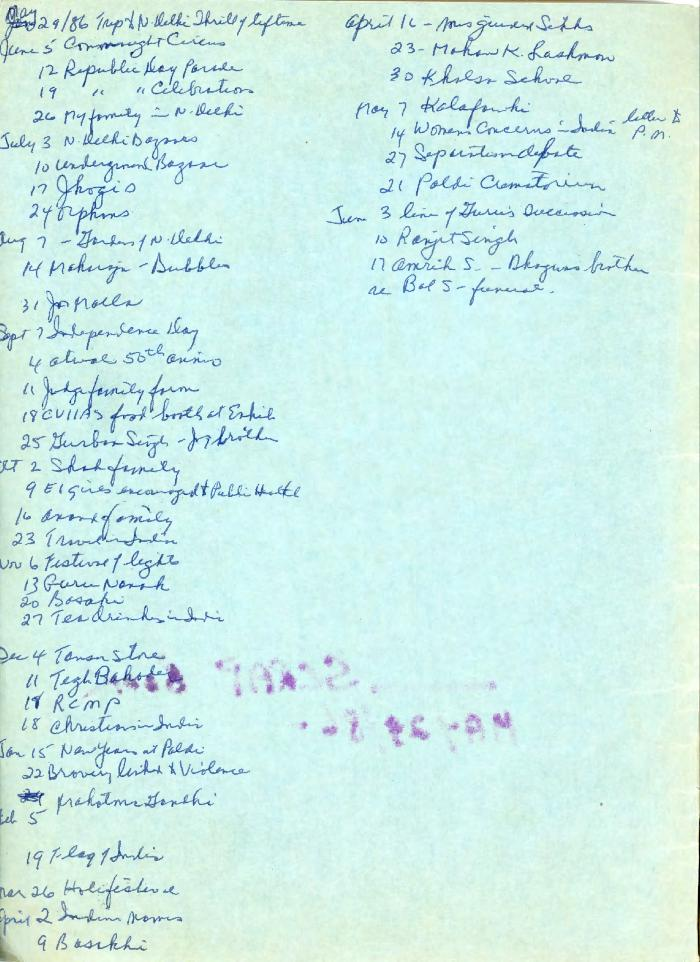 May 29/86 Trip to N. Delhi Thrill of lifetime
June 5 Connaught Circus
12 Republic Day Parade
19 " " Celebrations
26 My family in N. Delhi
July 3 N. Delhi Bazaars
10 Underground Bazaar
17 Jhogis
24 Orphans
Aug 7 - Gardens of N. Delhi
14 Maharaja - Bubbles
31 Jai Malla
Sept 7 Independence Day
4 50th anniv
11 Judge family farm
18 CVIIAS food booth at Exhib
25 Gurban Singh - Jog brother
Oct 2 Shah family
9 EI girls encouraged to Public Health
16 Anand family
23 Travel in India
Nov 6 Festival of lights
13 Guru Nanak
20 Basafi
27 Tea drinkes in India
Dec 4 Store
11 Tegh Bahader
18 RCMP
18 Christians in India
Jan 15 New Years at Paldi
22 Bravery linked to Violence
Mahatma Gandhi
Feb 5
19 Flag of India
Mar 26 Holi festival
April 2 Indian names
9 Basakhi
April 16 - Sikhs
23 - Mohan K. Lashman
30 Khalsa School
May 7 Kalapanhi
14 Womens Concerns - India letter to P.M.
27 Separation debate
21 Paldi Crematorium
June 3 line of Guru's Succession
10 Ranjit Singh
17 Amrik S. - Bhagwas brother
re Bal S - funeral.
SCRAP
MAY 29/86 -